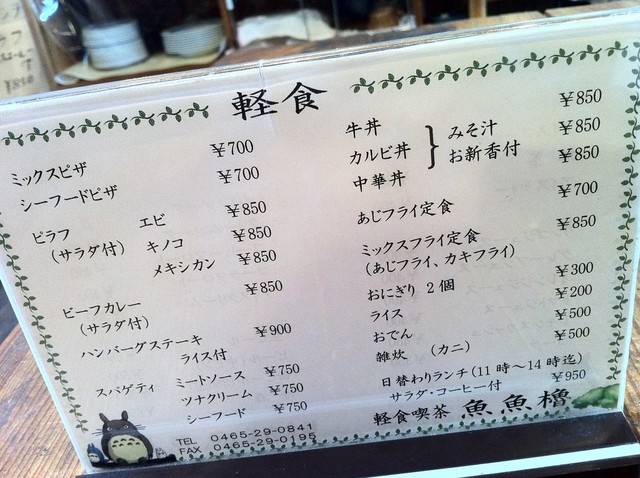 軽食
ミックスピザ ¥700
シーフードピザ ¥700
ピラフ エビ ¥850
(サラダ付) キノコ ¥850
メキシカン ¥850
ビーフカレー ¥850
(サラダ付)
ハンバーグステーキ ¥900
ライス付
スパゲティ ミートソース ¥750
ツナクリーム ¥750
シーフード ¥750
TEL 0465-29-0841
FAX 0465-29-0195
牛丼 ¥850
カルビ丼 みそ汁 ¥850
中華丼 お新香付 ¥850
あじフライ定食 ¥700
ミックスフライ定食 ¥850
(あじフライ、カキフライ)
おにぎり 2個 ¥300
ライス ¥200
おでん ¥500
雑炊 (カニ) ¥500
日替わりランチ(11時〜14時迄)
サラダ・コーヒー付 ¥950
軽食喫茶 魚魚櫓